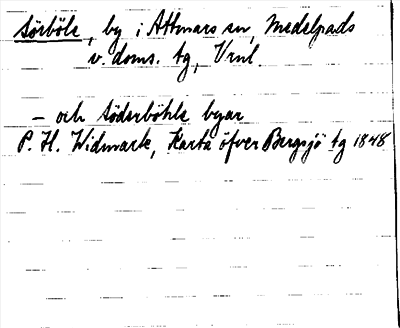 Sörböle, by i Attmars sn, Medelpads
v. doms. tg, Vrnl
– och Söderböhle byar
P. H. Widmark, Karta öfver Bergsjö tg 1848